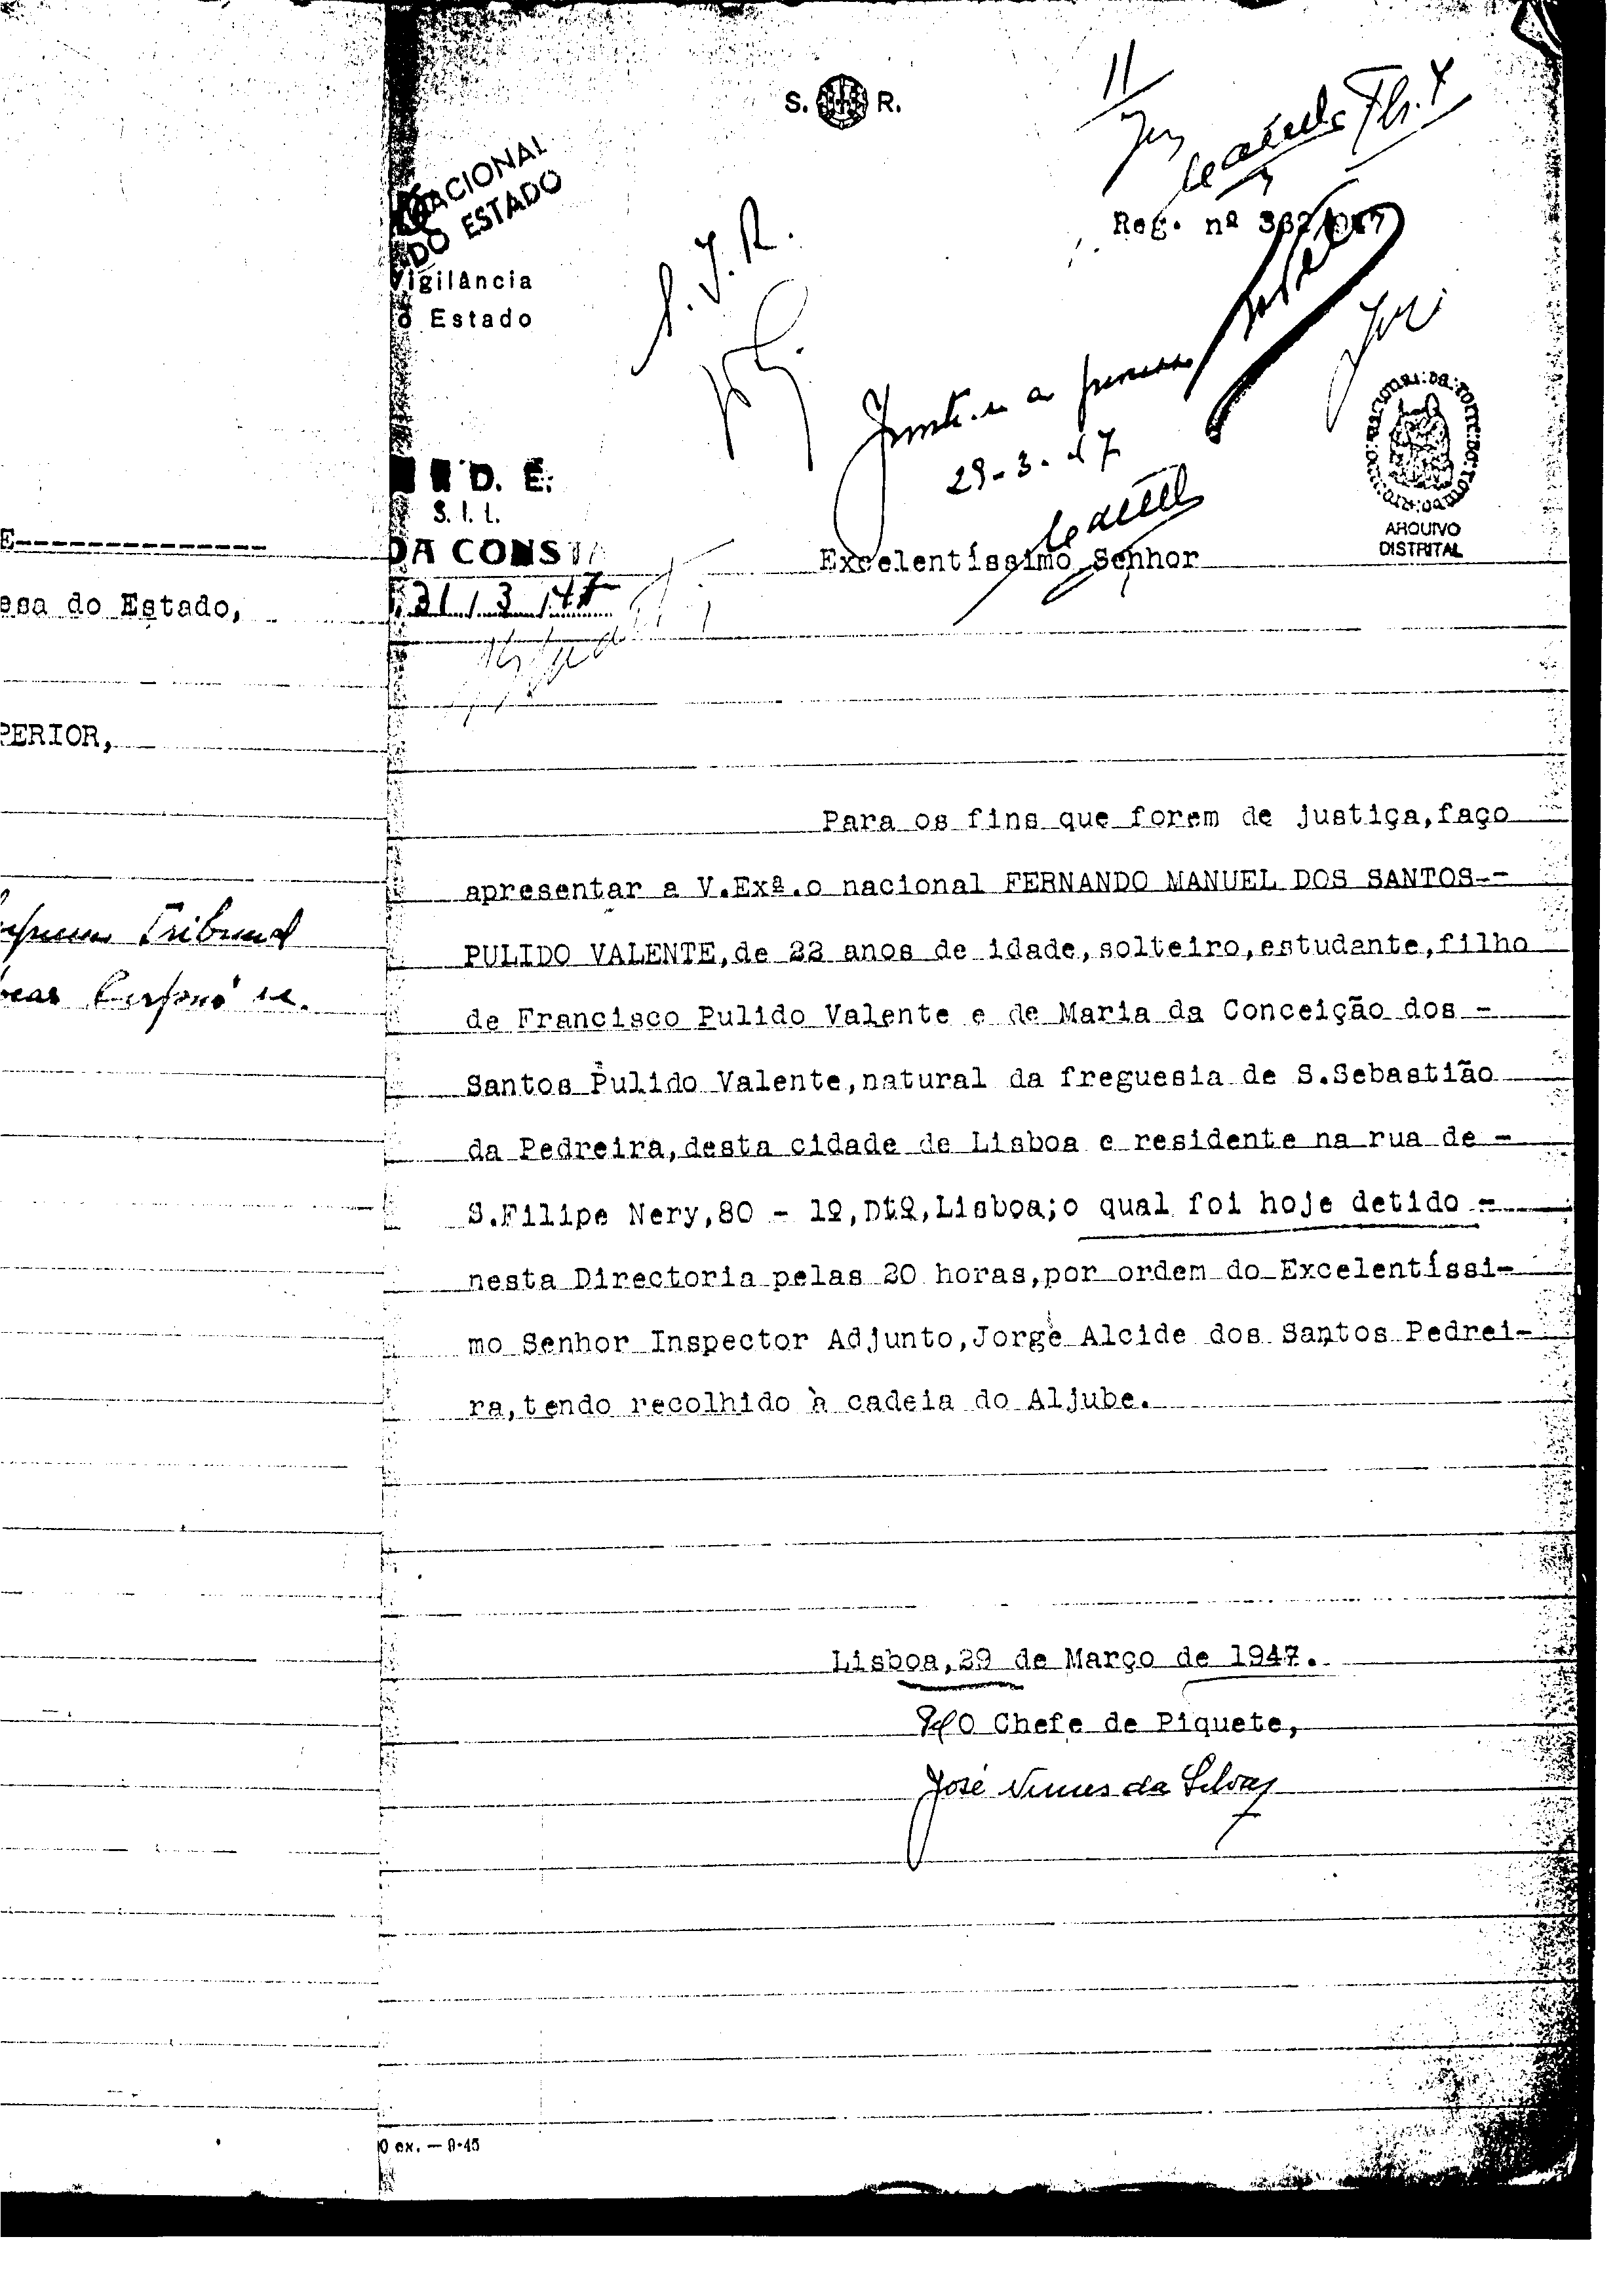 S. R.
NACIONAL
DO ESTADO
Vigilância
Estado
Reg. nº
S. J. R.
Junte-se a
29-3-47
D. E.
S. I. L.
DA CONSTA
31 / 3 / 47
ARQUIVO
DISTRITAL
Excelentíssimo Senhor
esa do Estado,
PERIOR,
Tribunal
Para os fins que forem de justiça,faço
apresentar a V.Exª.o nacional FERNANDO MANUEL DOS SANTOS--
PULIDO VALENTE,de 22 anos de idade,solteiro,estudante,filho
de Francisco Pulido Valente e de Maria da Conceição dos -
Santos Pulido Valente,natural da freguesia de S.Sebastião
da Pedreira,desta cidade de Lisboa e residente na rua de -
S.Filipe Nery,80 - 1º,Dtº,Lisboa;o qual foi hoje detido -
nesta Directoria pelas 20 horas,por ordem do Excelentíssi-
mo Senhor Inspector Adjunto,Jorge Alcide dos Santos Pedrei-
ra,tendo recolhido à cadeia do Aljube.
Lisboa,29 de Março de 1947.
O Chefe de Piquete,
José Nunes da Silva
0 ex. — 9-45